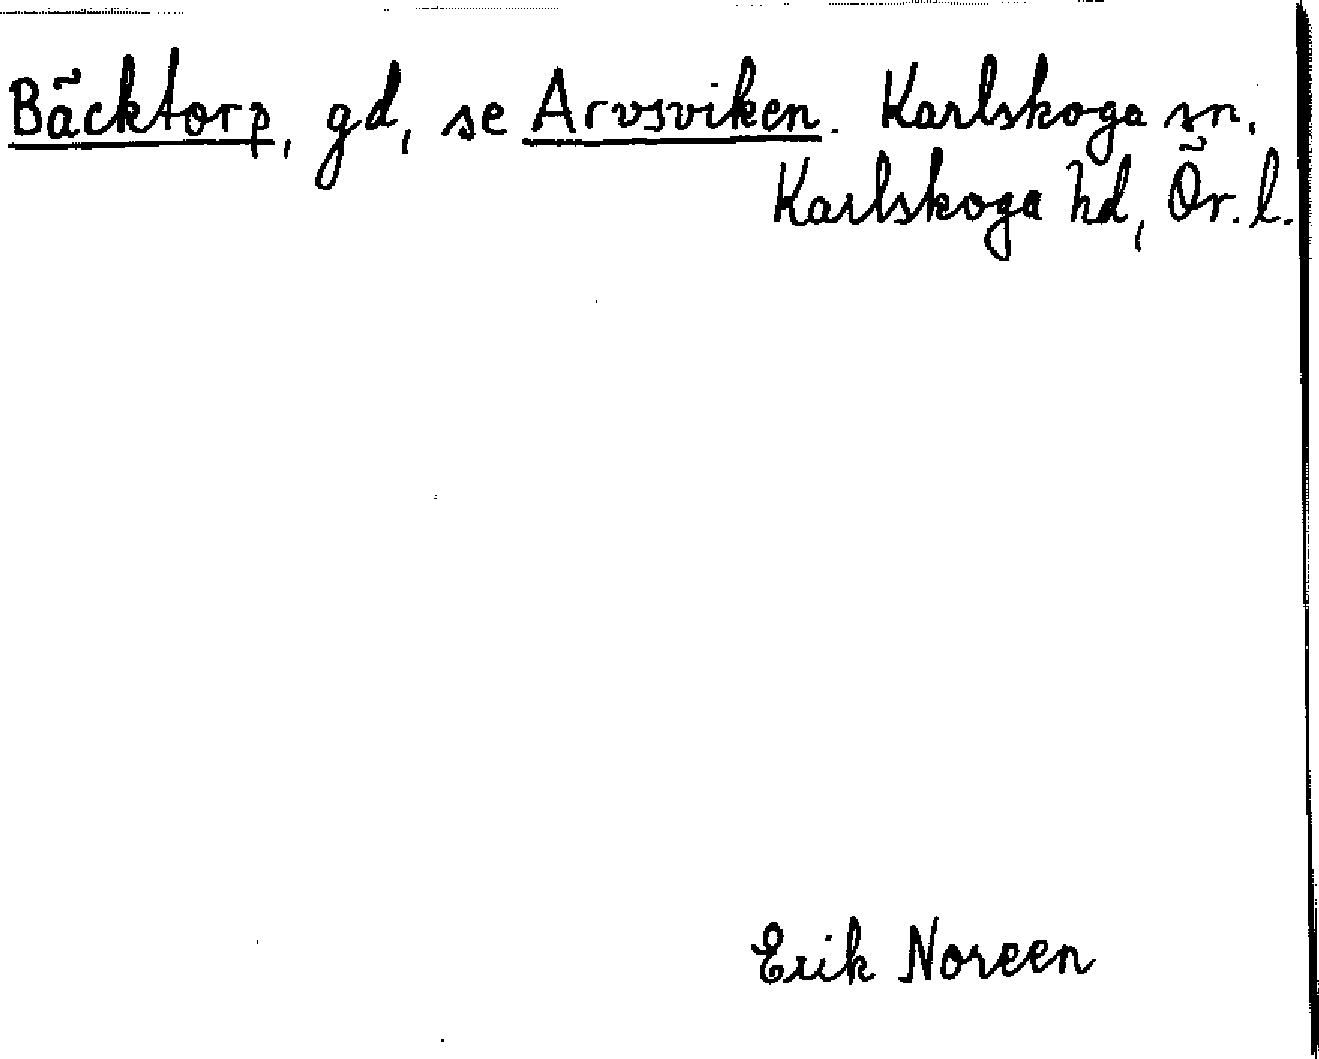 Bäcktorp, gd, se Arvsviken. Karlskoga sn.
Karlskoga hd, Ör. l.
Erik Noreen